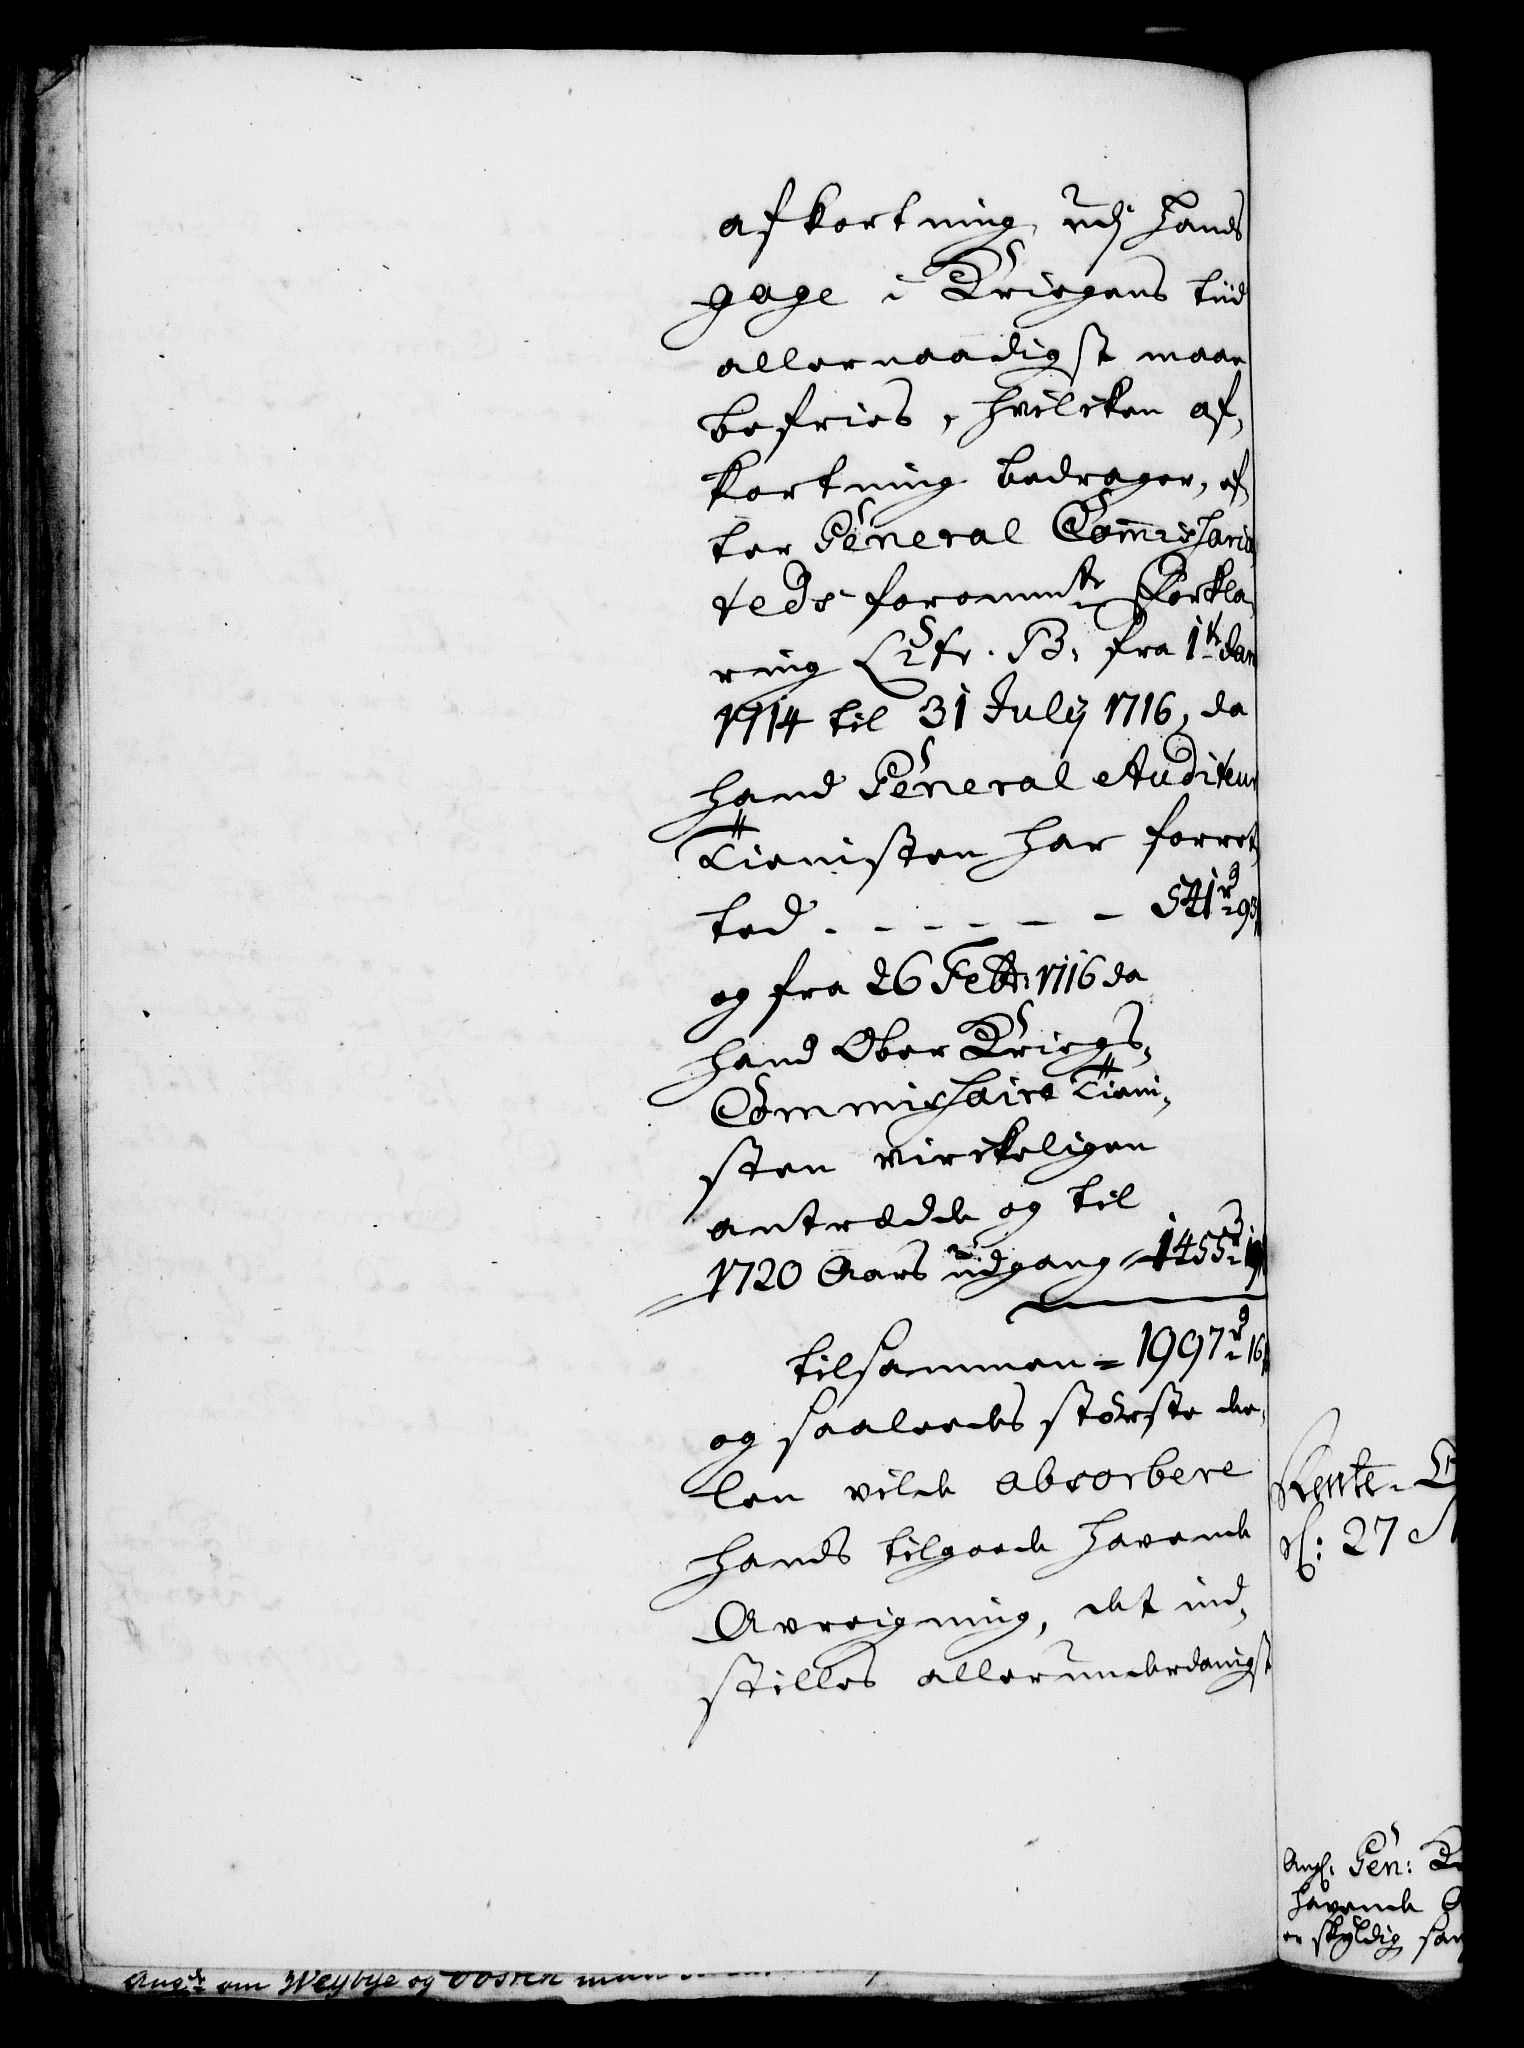 afkortning, udj hands
gage i Kriegens tiid
allernaadigst maae
befries, hvilcken af,
kortning bedrager, ef,
ter General Commissaria,
teds foromm.te Forkla,
ring Litr. B. fra 1te Jan
1714 til 31 July 1716, da
hand General Auditeur
Tienisten har forret,
ted - - - - - - 541 rd 93
og fra 26 Febr: 1716 da
hand Ober Kriegs,
Commissaire Tieni,
sten virckeligen
antrædde og til
1720 Aars udgang 1455 rd 19
tilsammen = 1997 rd 16
og saaleedes største de,
len vilde absorbere
hands tilgoede havende
Avreigning, det ind,
stilles allerunderdanigst
Rente-
27
Ang. Gen:
havende
er skyldig
Ang.de om Weybye og